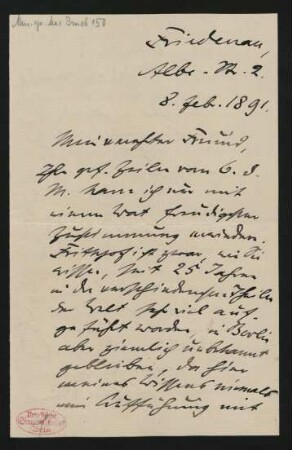 Mus. ep. Max Bruch 158
Friedenau,
Albe-Str. 2.
8. Feb. 1891.
Mein werther Freund,
Ihre gef. Zeilen vom 6. d.
M. kann ich nur mit
einem Wort freudigster
Zustimmung erwidern.
Frithjof ist zwar, wie Sie
wissen, seit 25 Jahren
in den verschiedensten Theilen
der Welt sehr viel auf-
geführt worden, in Berlin
aber ziemlich unbekannt
geblieben, da hier
meines Wissens niemals
eine Aufführung mit